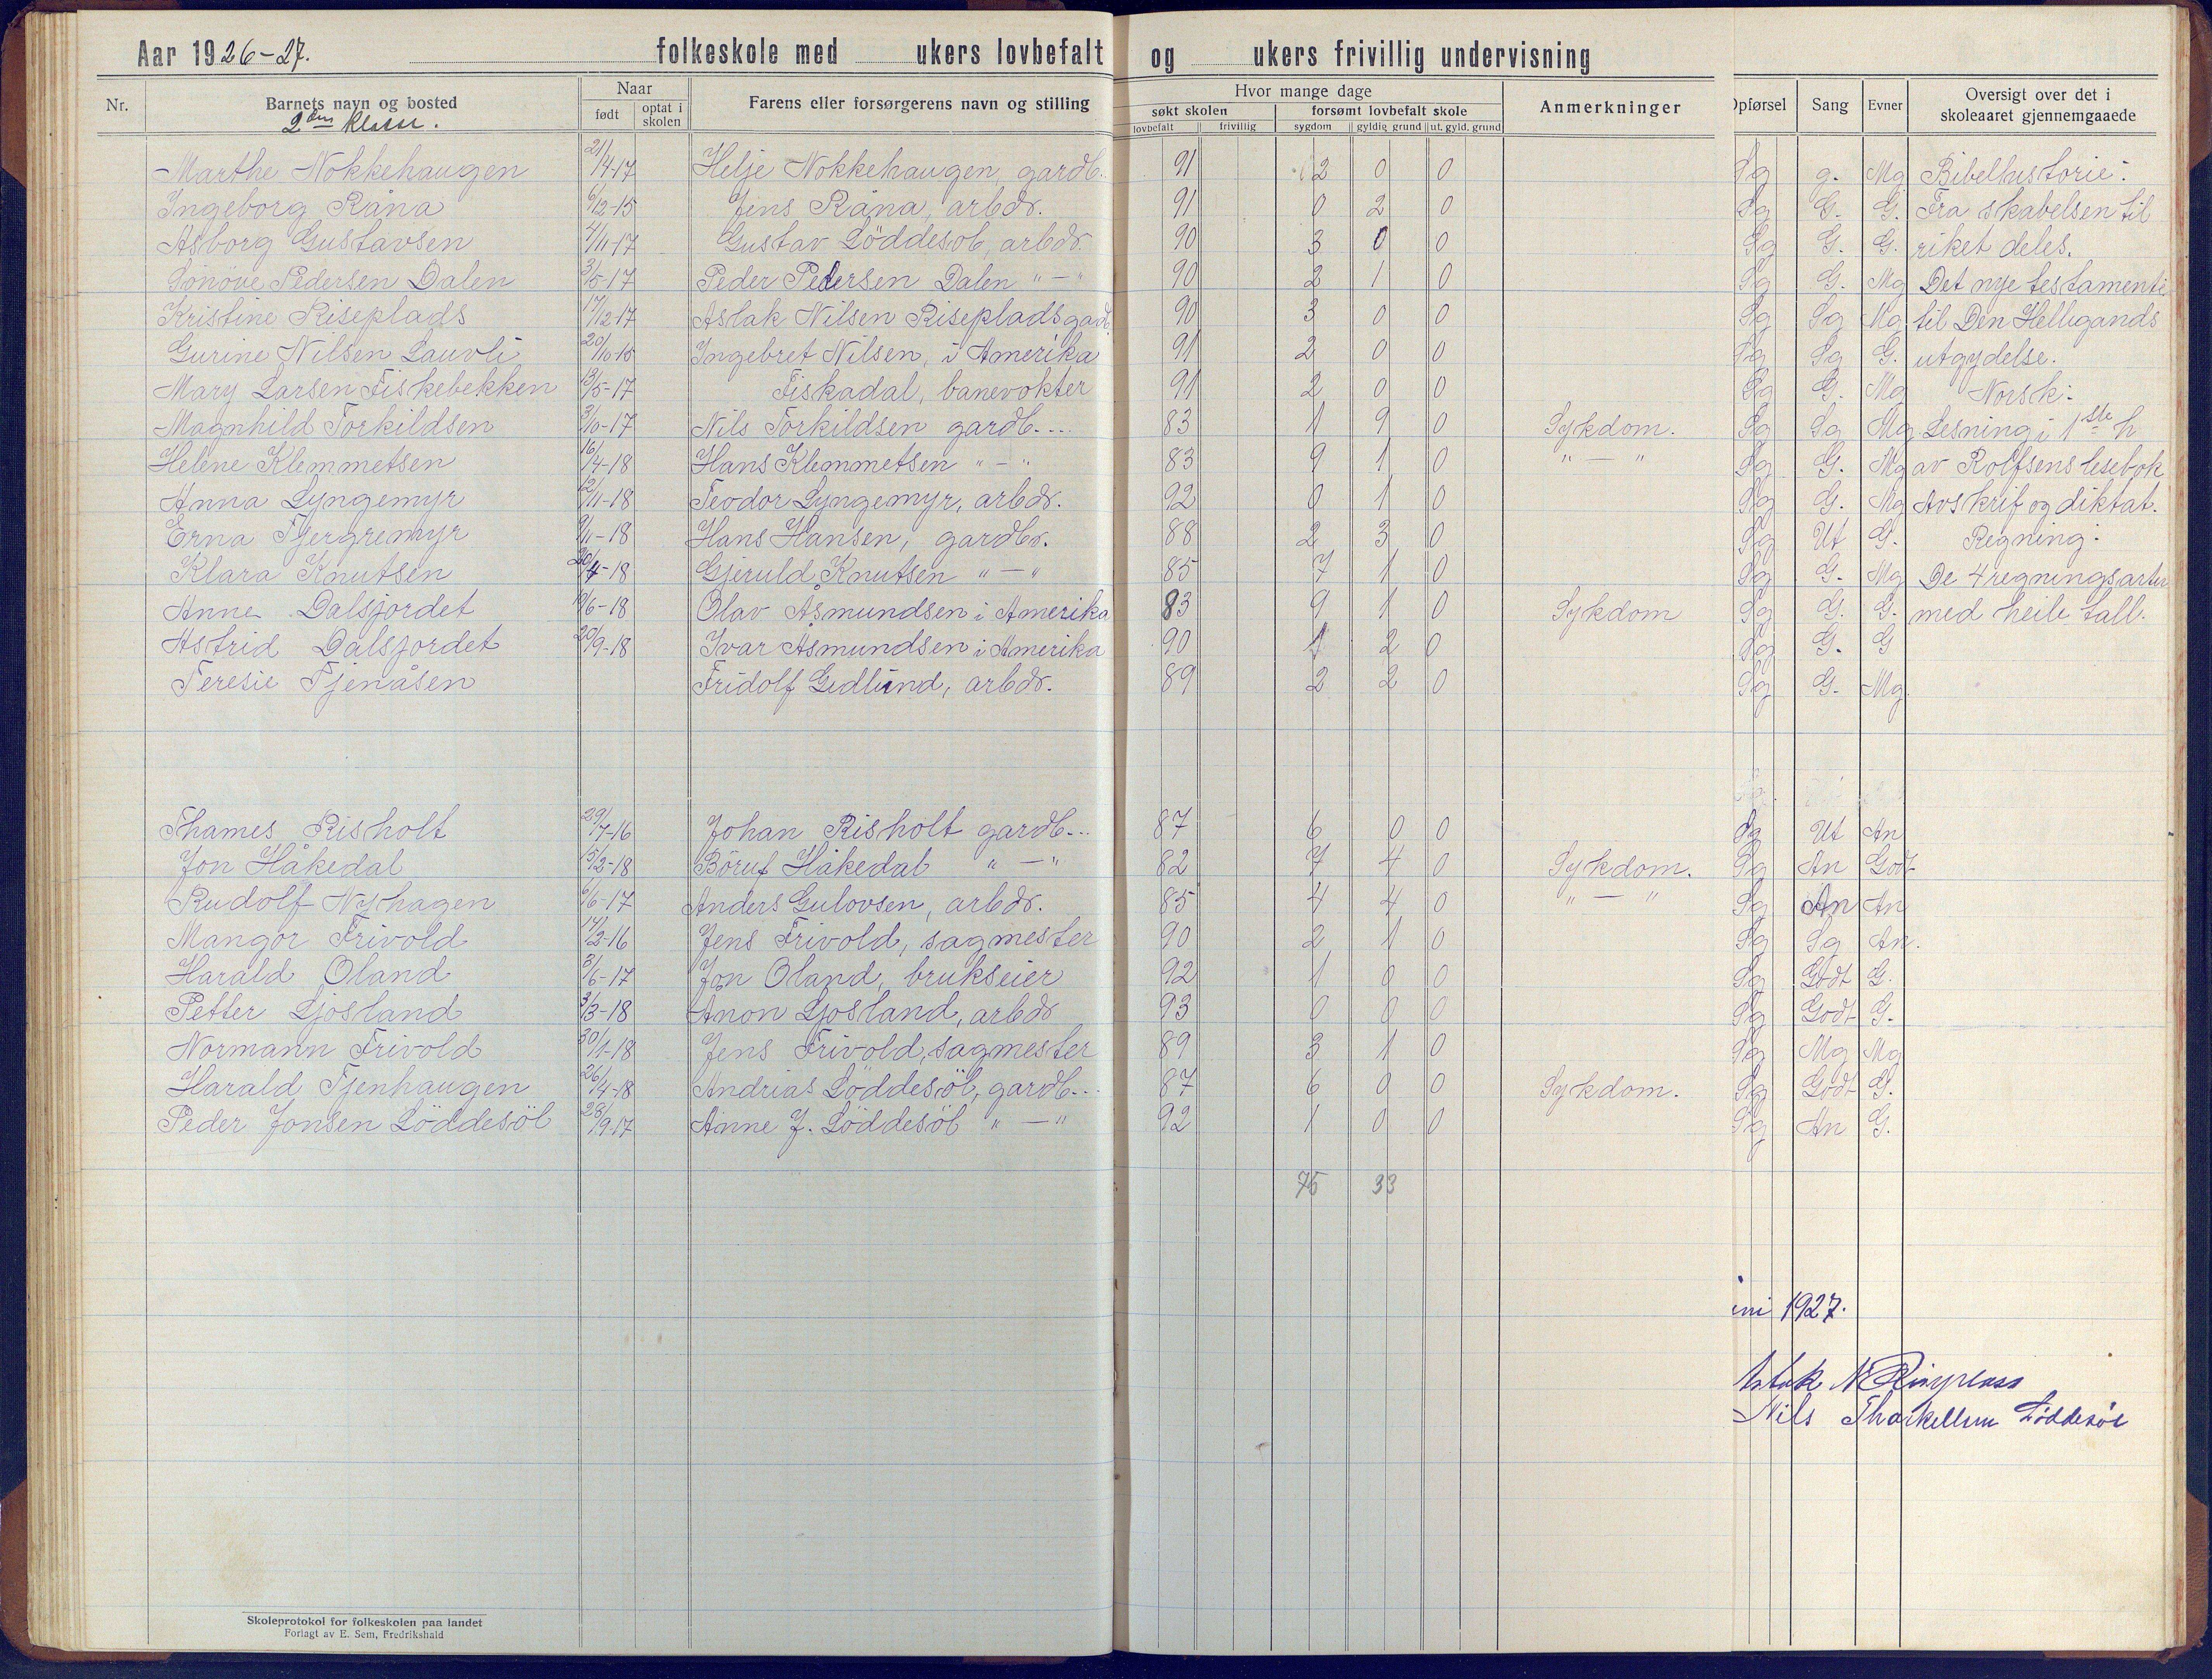 Aar 1926-27. folkeskole med ukers lovbefalt og ukers frivillig undervisning
Nr. Barnets navn og bosted Naar født optat i skolen Farens eller forsørgerens navn og stilling Hvor mange dage søkt skolen lovbefalt frivillig forsømt lovbefalt skole sygdom gyldig grund ut. gyld. grund Anmerkninger Opførsel Sang Evner Oversigt over det i skoleaaret gjennemgaaede
2den klasse.
Marthe Nokkehaugen 21/4-17 Helje Nokkehaugen, gardb. 91 2 0 0 Sg g. Mg Bibelhistorie:
Ingeborg Råna 6/12-15 Jens Råna, arbdr. 91 0 2 0 Sg G. G. Fra skabelsen til
Asborg Gustavsen 4/11-17 Gustav Löddesöl, arbdr. 90 3 0 0 Sg G. G. riket deles.
Sönöve Pedersen Dalen 3/5-17 Peder Pedersen Dalen " — " 90 2 1 0 Sg G. Mg Det nye testamente
Kristine Riseplads 17/12-17 Aslak Nilsen Riseplads gardb. 90 3 0 0 Sg Sg Mg til Den Helligands
Gurine Nilsen Lauvli 20/10-15 Ingebret Nilsen, i Amerika 91 2 0 0 Sg Sg G. utgydelse.
Mary Larsen Fiskebekken 13/5-17 Fiskadal, banevokter 91 2 0 0 Sg G. Mg Norsk:
Magnhild Torkildsen 3/10-17 Nils Torkildsen gardb.... 83 1 9 0 Sykdom. Sg Sg Mg Lesning i 1ste h
Helene Klemmetsen 16/4-18 Hans Klemmetsen " — " 83 9 1 0 " — " Sg G. Mg av Rolfsens lesebok
Anna Lyngemyr 12/11-18 Teodor Lyngemyr, arbdr. 92 0 1 0 Sg G. Mg Avskrif og diktat.
Erna Tjergremyr 9/11-18 Hans Hansen, gardbr. 88 2 3 0 Sg Ut G. Regning:
Klara Knutsen 20/4-18 Gjeruld Knutsen " — " 85 7 1 0 Sg G. Mg De 4 regningsarter
Anne Dalsjordet 19/6-18 Olav Åsmundsen i Amerika 83 9 1 0 Sykdom Sg G. G. med heile tall.
Astrid Dalsjordet 20/9-18 Ivar Åsmundsen i Amerika 90 1 2 0 Sg G. G
Teresie Tjenåsen Fridolf Gedlund, arbdr. 89 2 2 0 Sg G. Mg.
Thames Risholt 29/7-16 Johan Risholt gardb... 87 6 0 0 Sg Ut An
Jon Håkedal 5/2-18 Böruf Håkedal " — " 82 7 4 0 Sykdom. Sg An Godt
Rudolf Nyhagen 6/6-17 Anders Gulovsen, arbdr. 85 4 4 0 " — " Sg An An
Mangor Frivold 14/2-16 Jens Frivold, sagmester 90 2 1 0 Sg Sg An.
Harald Oland 3/6-17 Jon Oland, brukseier 92 1 0 0 Sg Godt G.
Petter Ljosland 3/3-18 Anon Ljosland, arbdr 93 0 0 0 Sg Godt G.
Normann Frivold 30/1-18 Jens Frivold, sagmester 89 3 1 0 Sg Mg Mg
Harald Tjenhaugen 26/4-18 Andrias Löddesöl, gardb... 87 6 0 0 Sykdom. Sg Godt G.
Peder Jonsen Löddesöl 28/9-17 Anne J. Löddesöl " — " 92 1 0 0 Sg An G.
75 33
ini 1927.
Aslak N Riseplass
Nils Thorkellsen Løddesøl
Skoleprotokol for folkeskolen paa landet
Forlagt av E. Sem, Fredrikshald